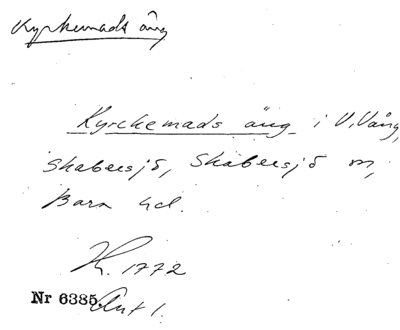 Kyrkemads äng
Kyrckemads äng i V. Vång,
Skabersjö, Skabersjö sn,
Bara hd.
K. 1772
Nr 6385 Akt 1.